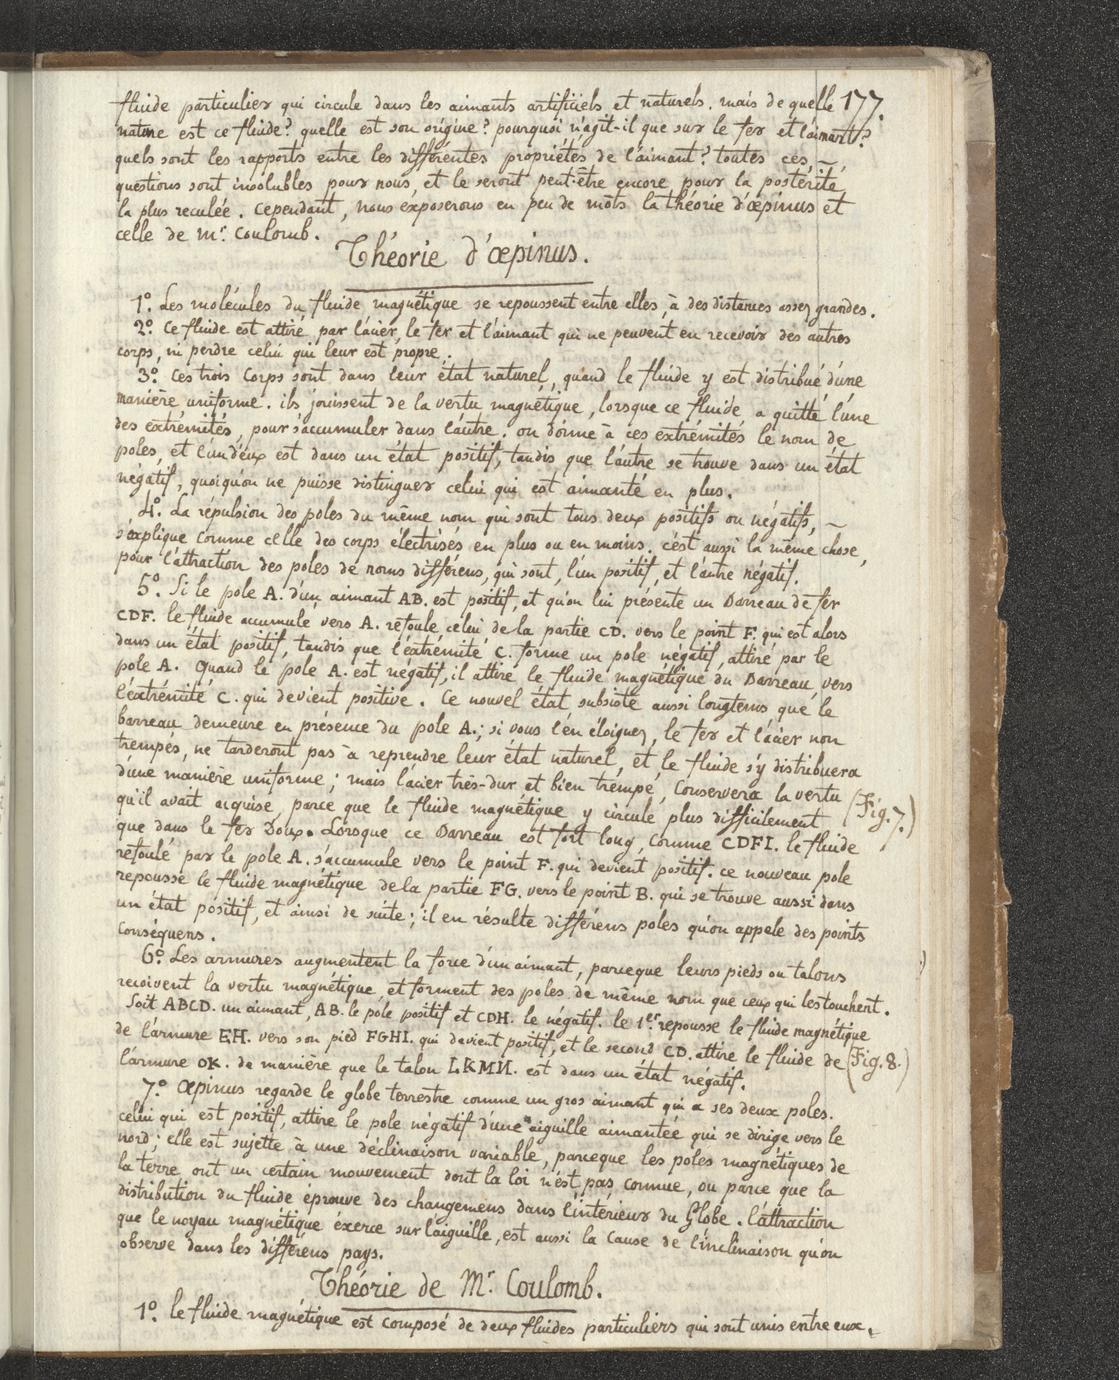 177.
fluide particulier qui circule dans les aimants artificiels et naturels. mais de quelle
nature est ce fluide? quelle est son origine? pourquoi n'agit-il que sur le fer et l'aimant?
quels sont les rapports entre les différentes propriétés de l'aimant? toutes ces
questions sont insolubles pour nous, et le seront peut-être encore pour la postérité
la plus reculée. cependant, nous exposerons en peu de mots la théorie d'œpinus et
celle de mr. Coulomb.
Théorie d'œpinus.
1º. Les molécules du fluide magnétique se repoussent entre elles, à des distances assez grandes.
2º. Ce fluide est attiré par l'acier, le fer et l'aimant qui ne peuvent en recevoir des autres
corps, ni perdre celui qui leur est propre.
3º. Ces trois Corps sont dans leur état naturel, quand le fluide y est distribué d'une
manière uniforme. ils jouissent de la vertu magnétique, lorsque ce fluide a quitté l'une
des extrémités, pour s'accumuler dans l'autre. on donne à ces extrémités le nom de
poles, et l'un d'eux est dans un état positif, tandis que l'autre se trouve dans un état
négatif, quoiqu'on ne puisse distinguer celui qui est aimanté en plus.
4º. La répulsion des poles du même nom qui sont tous deux positifs ou négatifs,
s'explique comme celle des corps électrisés en plus ou en moins. c'est aussi la même chose,
pour l'attraction des poles de noms différens, qui sont, l'un positif, et l'autre négatif.
5º. Si le pole A. d'un aimant AB. est positif, et qu'on lui présente un Barreau de fer
CDF. le fluide accumulé vers A. refoule celui de la partie CD. vers le point F. qui est alors
dans un état positif, tandis que l'éxtrémité C. forme un pole négatif, attiré par le
pole A. Quand le pole A. est négatif, il attire le fluide magnétique du Barreau vers
l'éxtrémité C. qui devient positive. Ce nouvel état subsiste aussi longtems que le
barreau demeure en présence du pole A.; si vous l'en éloignez, le fer et l'acier non
trempés, ne tarderont pas à reprendre leur état naturel, et le fluide s'y distribuera
d'une manière uniforme; mais l'acier très-dur et bien trempé, Conservera la vertu
qu'il avait acquise, parce que le fluide magnétique y circule plus difficilement (Fig. 7.)
que dans le fer Doux. Lorsque ce Barreau est fort long, comme CDFI. le fluide
refoulé par le pole A. s'accumule vers le point F. qui devient positif. ce nouveau pole
repousse le fluide magnétique de la partie FG. vers le point B. qui se trouve aussi dans
un état positif, et ainsi de suite; il en résulte différens poles qu'on appele des points
Conséquens.
6º. Les armures augmentent la force d'un aimant, parceque leurs pieds ou talons
recoivent la vertu magnétique, et forment des poles de même nom que ceux qui les touchent.
Soit ABCD. un aimant, AB. le pole positif et CDH. le négatif. le 1er. repousse le fluide magnétique
de l'armure EH. vers son pied FGHI. qui devient positif, et le second CD. attire le fluide de (Fig. 8.)
l'armure OK. de manière que le talon LKMN. est dans un état négatif.
7º. Œpinus regarde le globe terrestre comme un gros aimant qui a ses deux poles.
celui qui est positif, attire le pole négatif d'une aiguille aimantée qui se dirige vers le
nord; elle est sujette à une déclinaison variable, parceque les poles magnétiques de
la terre ont un certain mouvement dont la loi n'est pas connue, ou parce que la
distribution du fluide éprouve des changemens dans l'intérieur du Globe. l'attraction
que le noyau magnétique éxerce sur l'aiguille, est aussi la Cause de l'inclinaison qu'on
observe dans les différens pays.
Théorie de Mr. Coulomb.
1º. le fluide magnétique est Composé de deux fluides particuliers qui sont unis entre eux.